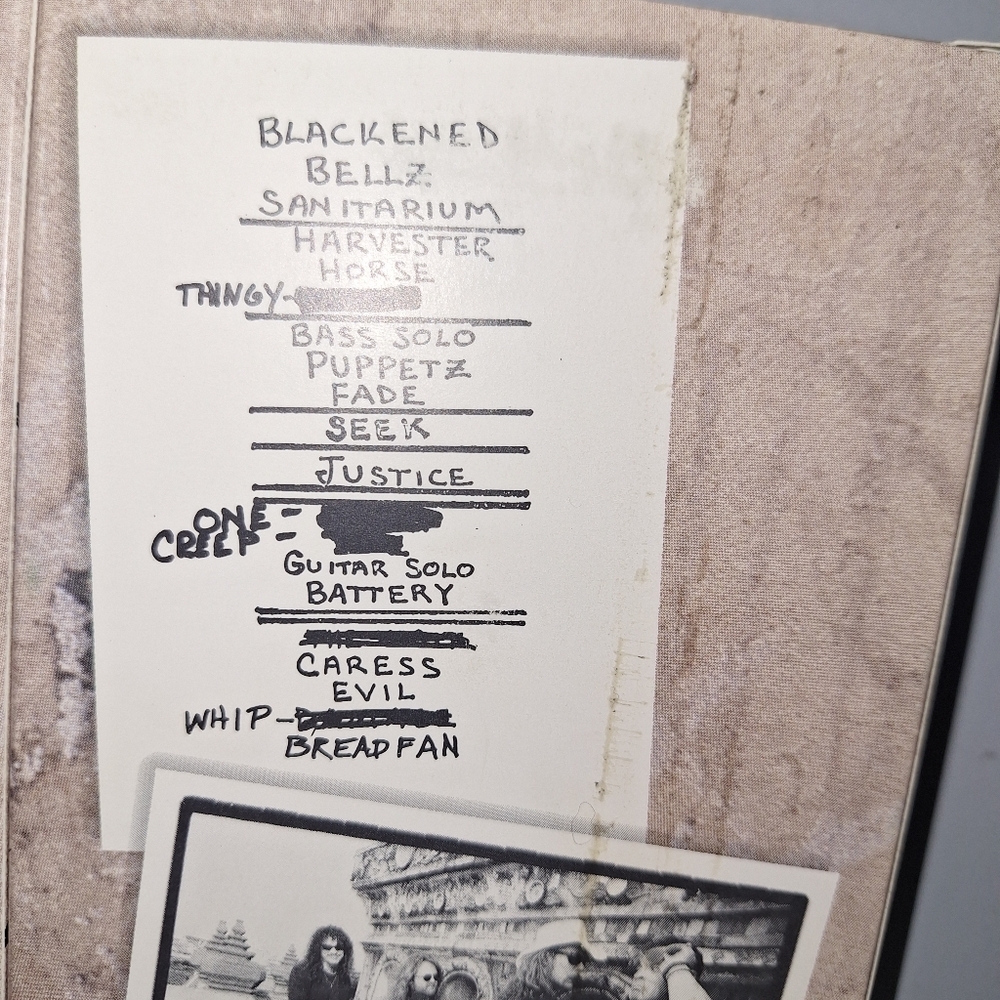 BLACKENED
BELLZ
SANITARIUM
HARVESTER
HORSE
THINGY-
BASS SOLO
PUPPETZ
FADE
SEEK
JUSTICE
ONE-
CREEP-
GUITAR SOLO
BATTERY
CARESS
EVIL
WHIP-
BREADFAN